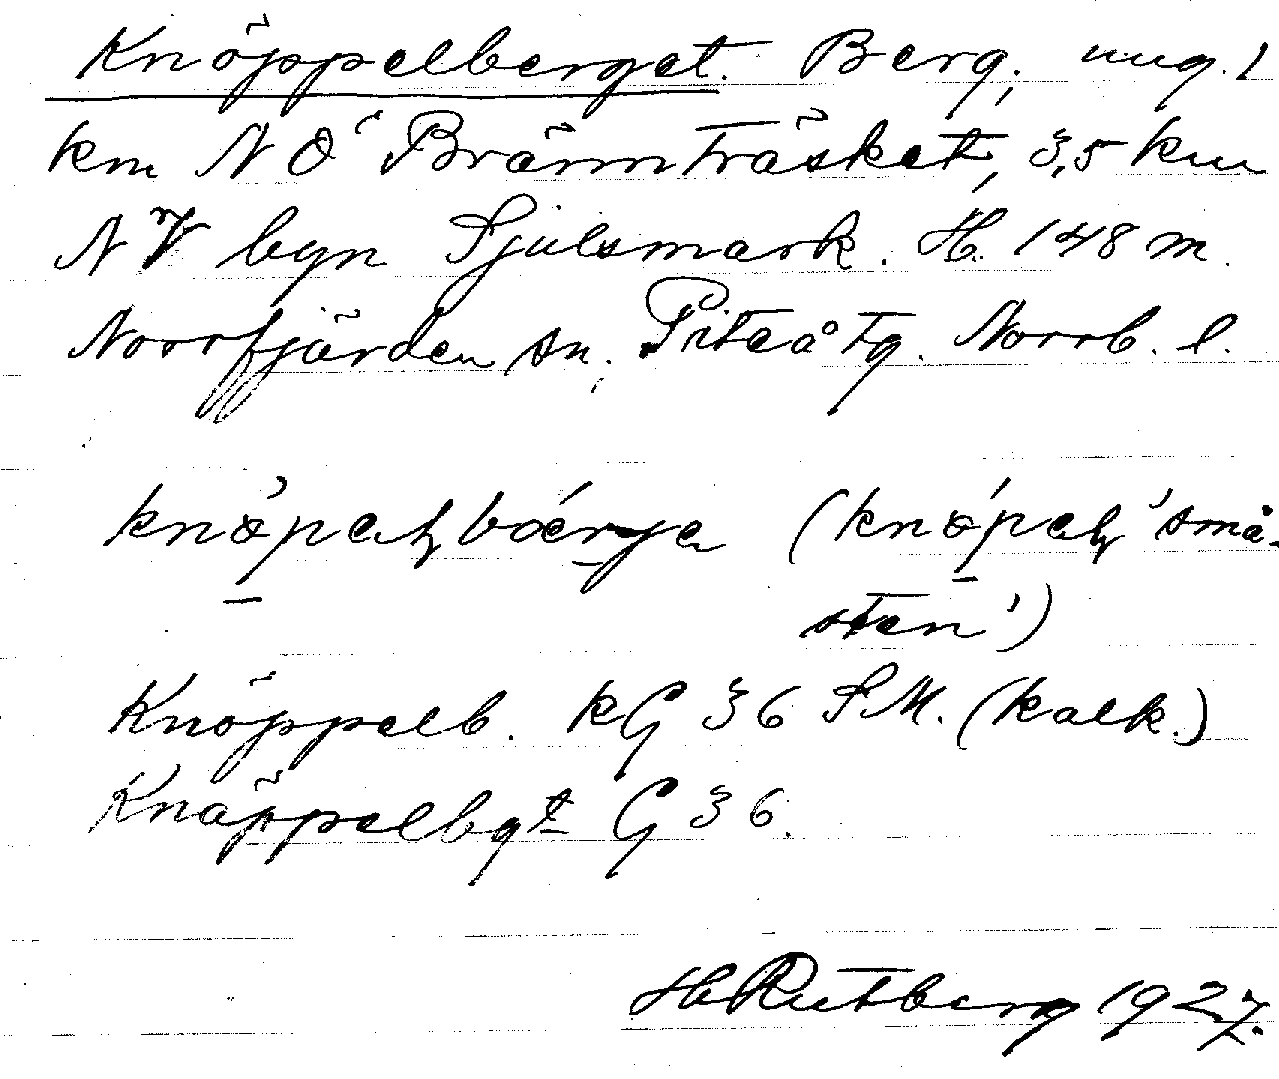 Knöppelberget. Berg, ung. 1
km NÖ Brännträsket, 3,5 km
NV byn Sjulsmark. H. 148 m.
Norrfjärden sn. Piteå tg. Norrb. l.
'små-
sten')
Knöppelb. kG 36 SM. (kalk.)
Knäppelbgt G 36.
H Rutberg 1927.